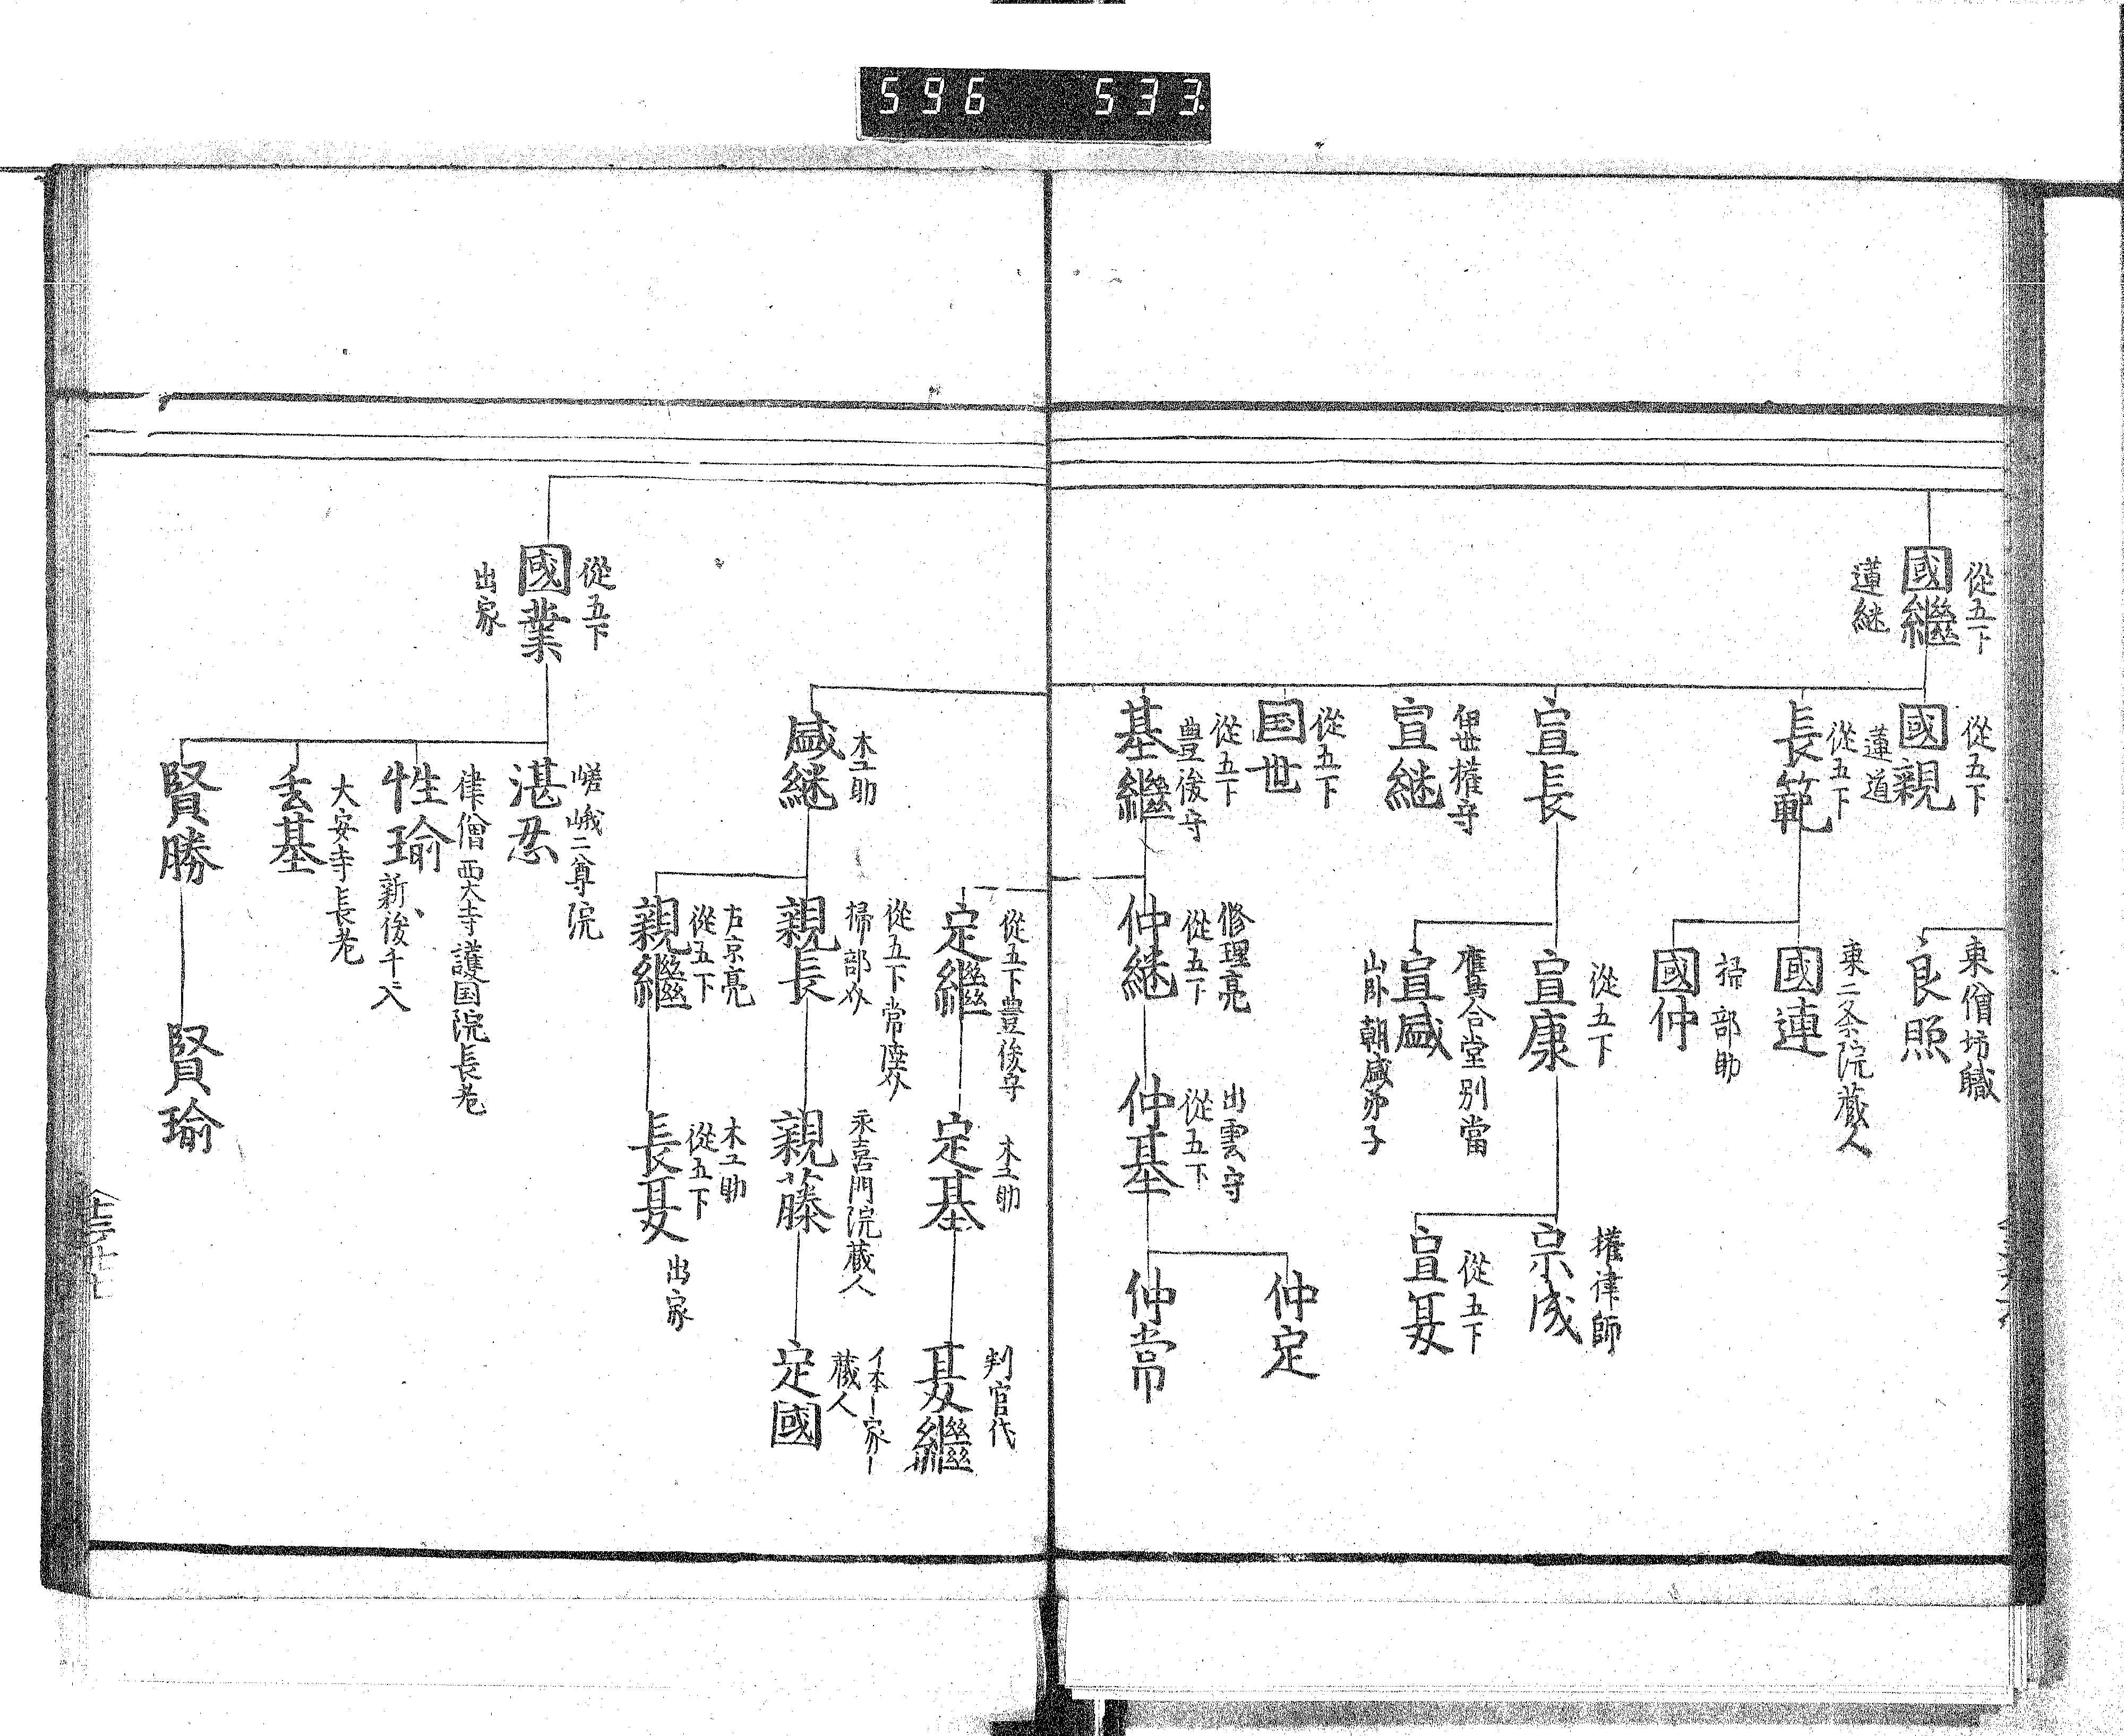 596 533
從五下
國繼
蓮継
從五下
國親
蓮道
從五下
長範
東僧坊職
良照
東二条院蔵人
國連
掃部助
國仲
宣長
從五下
宣康
權律師
宗成
從五下
宣
鷹合堂別當
宣盛
山卧朝盛弟子
宣継
從五下
国世
從五下
豊後守
基繼
修理亮
從五下
仲継
出雲守
從五下
仲基
仲定
仲常
從五下豊後守
定繼
木工助
定基
判官代
繼
木工助
盛継
從五下常陸介
掃部介
親長
永喜門院蔵人
親藤
イ本ー家ー
蔵人
定國
左京亮
從五下
親繼
木工助
從五下
長
出家
從五下
國業
出家
嵯峨二尊院
湛忍
律僧 西大寺護国院長老
性瑜
新後千ニ入
大安寺長老
基
賢勝
賢瑜